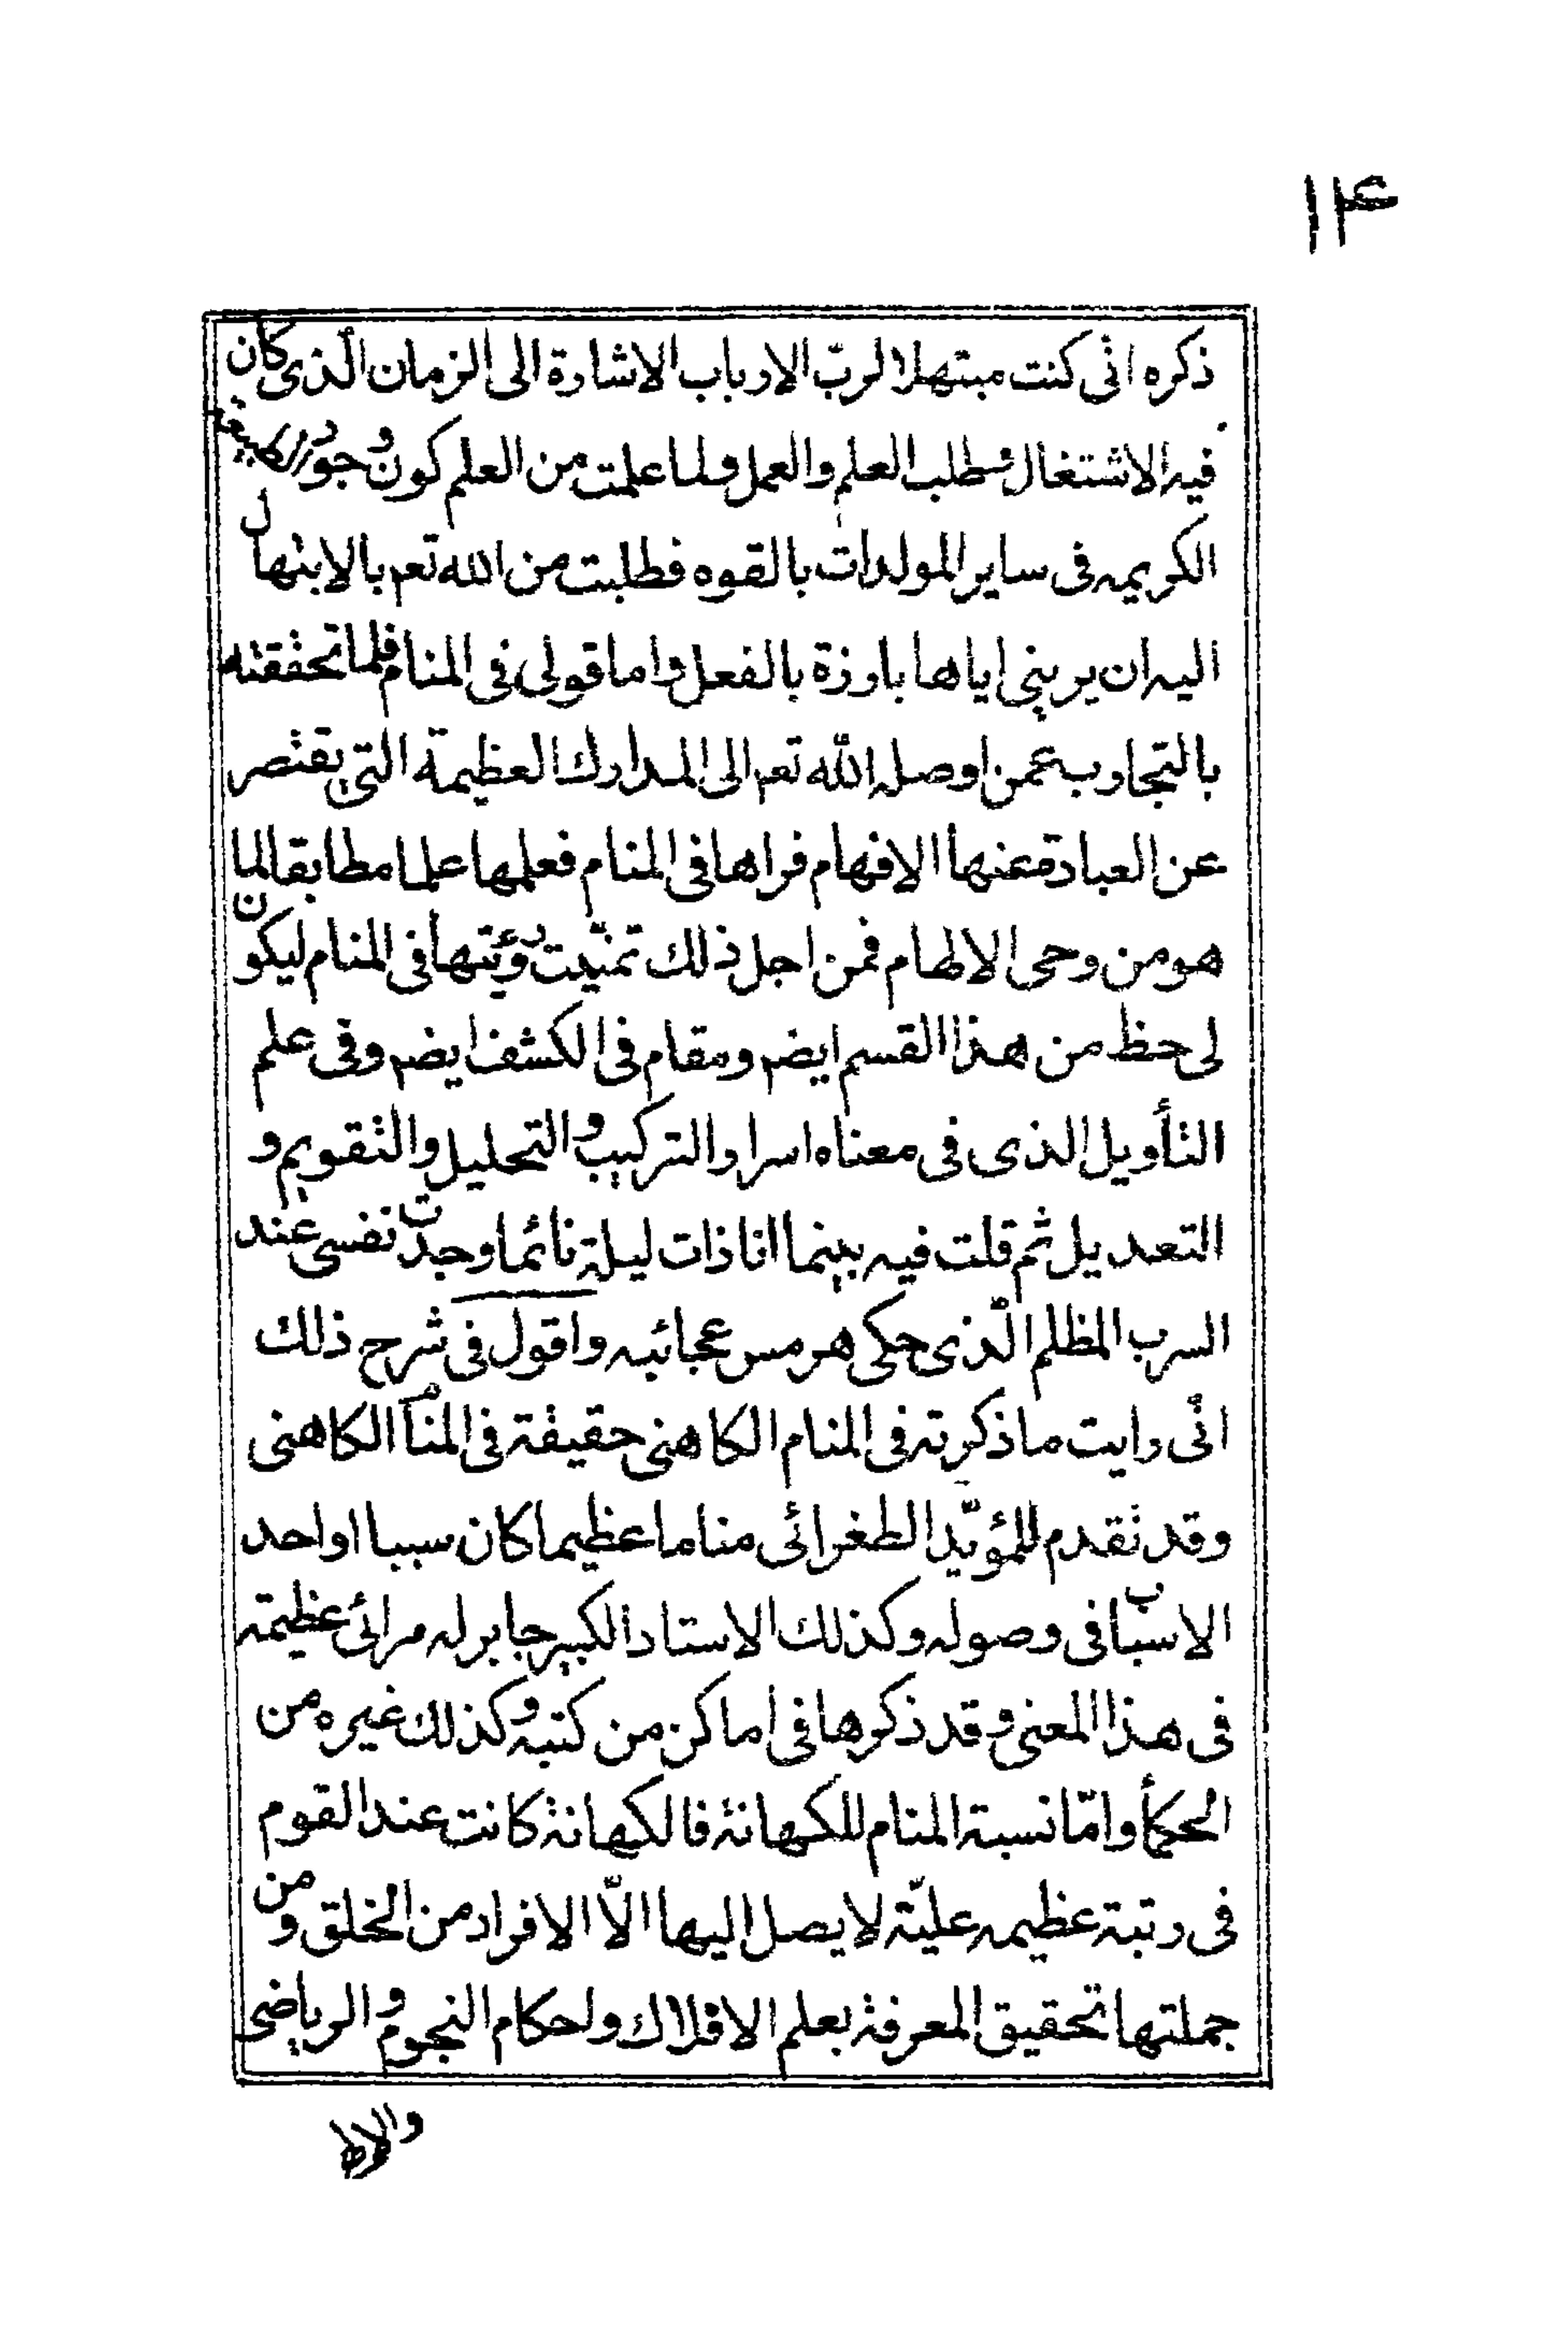 ۱۴
ذكره انّى كنت مبتهلا لربّ الارباب الاشارة الى الزمان الّذى كان
فيه الاشتغال بطلب العلم والعمل ولما علمت من العلم كون وجود
الكريمه فى ساير المولدات بالقوه فطلبت من الله تعم بالابتهال
اليه ان يرينى اياها بارزة بالفعل واما قولى فى المنام فلما تحققته
بالتجارب عمن اوصله الله تعم الى المدارك العظيمة التى يقتصر
عن العبارة عنها الافهام فراها فى المنام فعلمها علما مطابقا لما
هو من وحى الالهام فمن اجل ذلك تمنّيت رؤيتها فى المنام ليكون
لى حظ من هذا القسم ايضم ومقام فى الكشف ايضم وفى علم
التأويل الذى فى معناه اسرار التركيب والتحليل والتقويم و
التعديل ثم قلت فيه بينما انا ذات ليلة نائما وجدت نفسى عند
السرب المظلم الّذى حكى هرمس عجائبه واقول فى شرح ذلك
انّى رايت ما ذكرته فى المنام الكاهنى حقيقة فى المنام الكاهنى
وقد تقدم للمؤيّد الطغرائى مناما عظيما كان سببا او احد
الاسباب فى وصوله وكذلك الاستاد الكبير جابر له مرائى عظيمة
فى هذا المعنى وقد ذكرها فى اماكن من كتبه وكذلك غيره من
الحكمأ وامّا نسبة المنام للكهانة فالكهانة كانت عند القوم
فى رتبة عظيمه عليّة لا يصل اليها الّا الافراد من الخلق ومن
جملتها تحقيق المعرفة بعلم الافلاك واحكام النجوم والرياضى